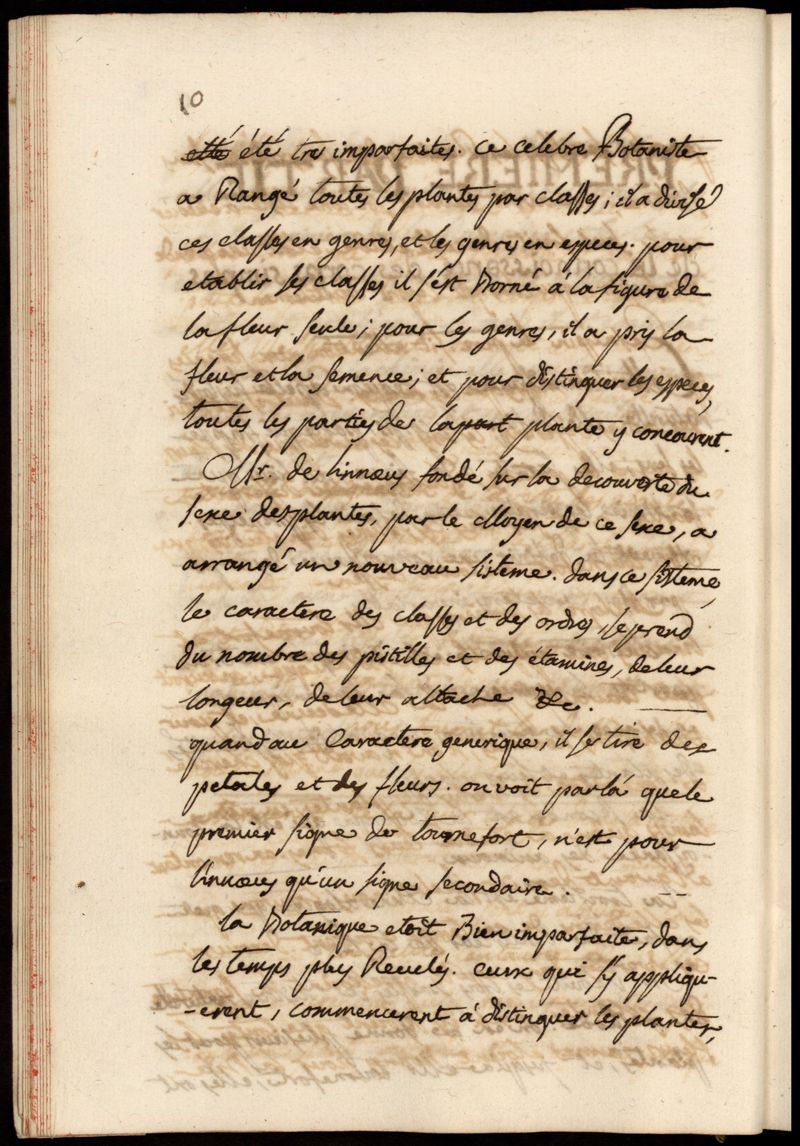 10
etté été tres imparfaites. ce celebre Botaniste
a Rangé toutes les plantes par classes ; il a divisé
ces classes en genres, et les genres en especes. pour
etablir ses classes il s'ést Borné á la figure de
la fleur seule ; pour les genres, il a pris la
fleur et la semence ; et pour distinquer les especes,
toutes les parties de la part plante y concourent.
Mr. de linnœus fondé sur la decouverte du
sexe des plantes, par le Moyen de ce sexe, a
arrangé un nouveau sisteme. dans ce sisteme,
le caractere des classes et des ordres, se prend
du nombre des pistilles et des étamines, de leur
longeur, de leur attache &c.
quand au Caractere generique, il se tire des
petales et des fleurs. on voit par lá que le
premier signe de tournefort, n'est pour
linnœus qu'un signe secondaire.
la Botanique etoit Bien imparfaite, dans
les temps plus Reculés. ceux qui s'y appliqu-
-erent, commencerent á distinquer les plantes,